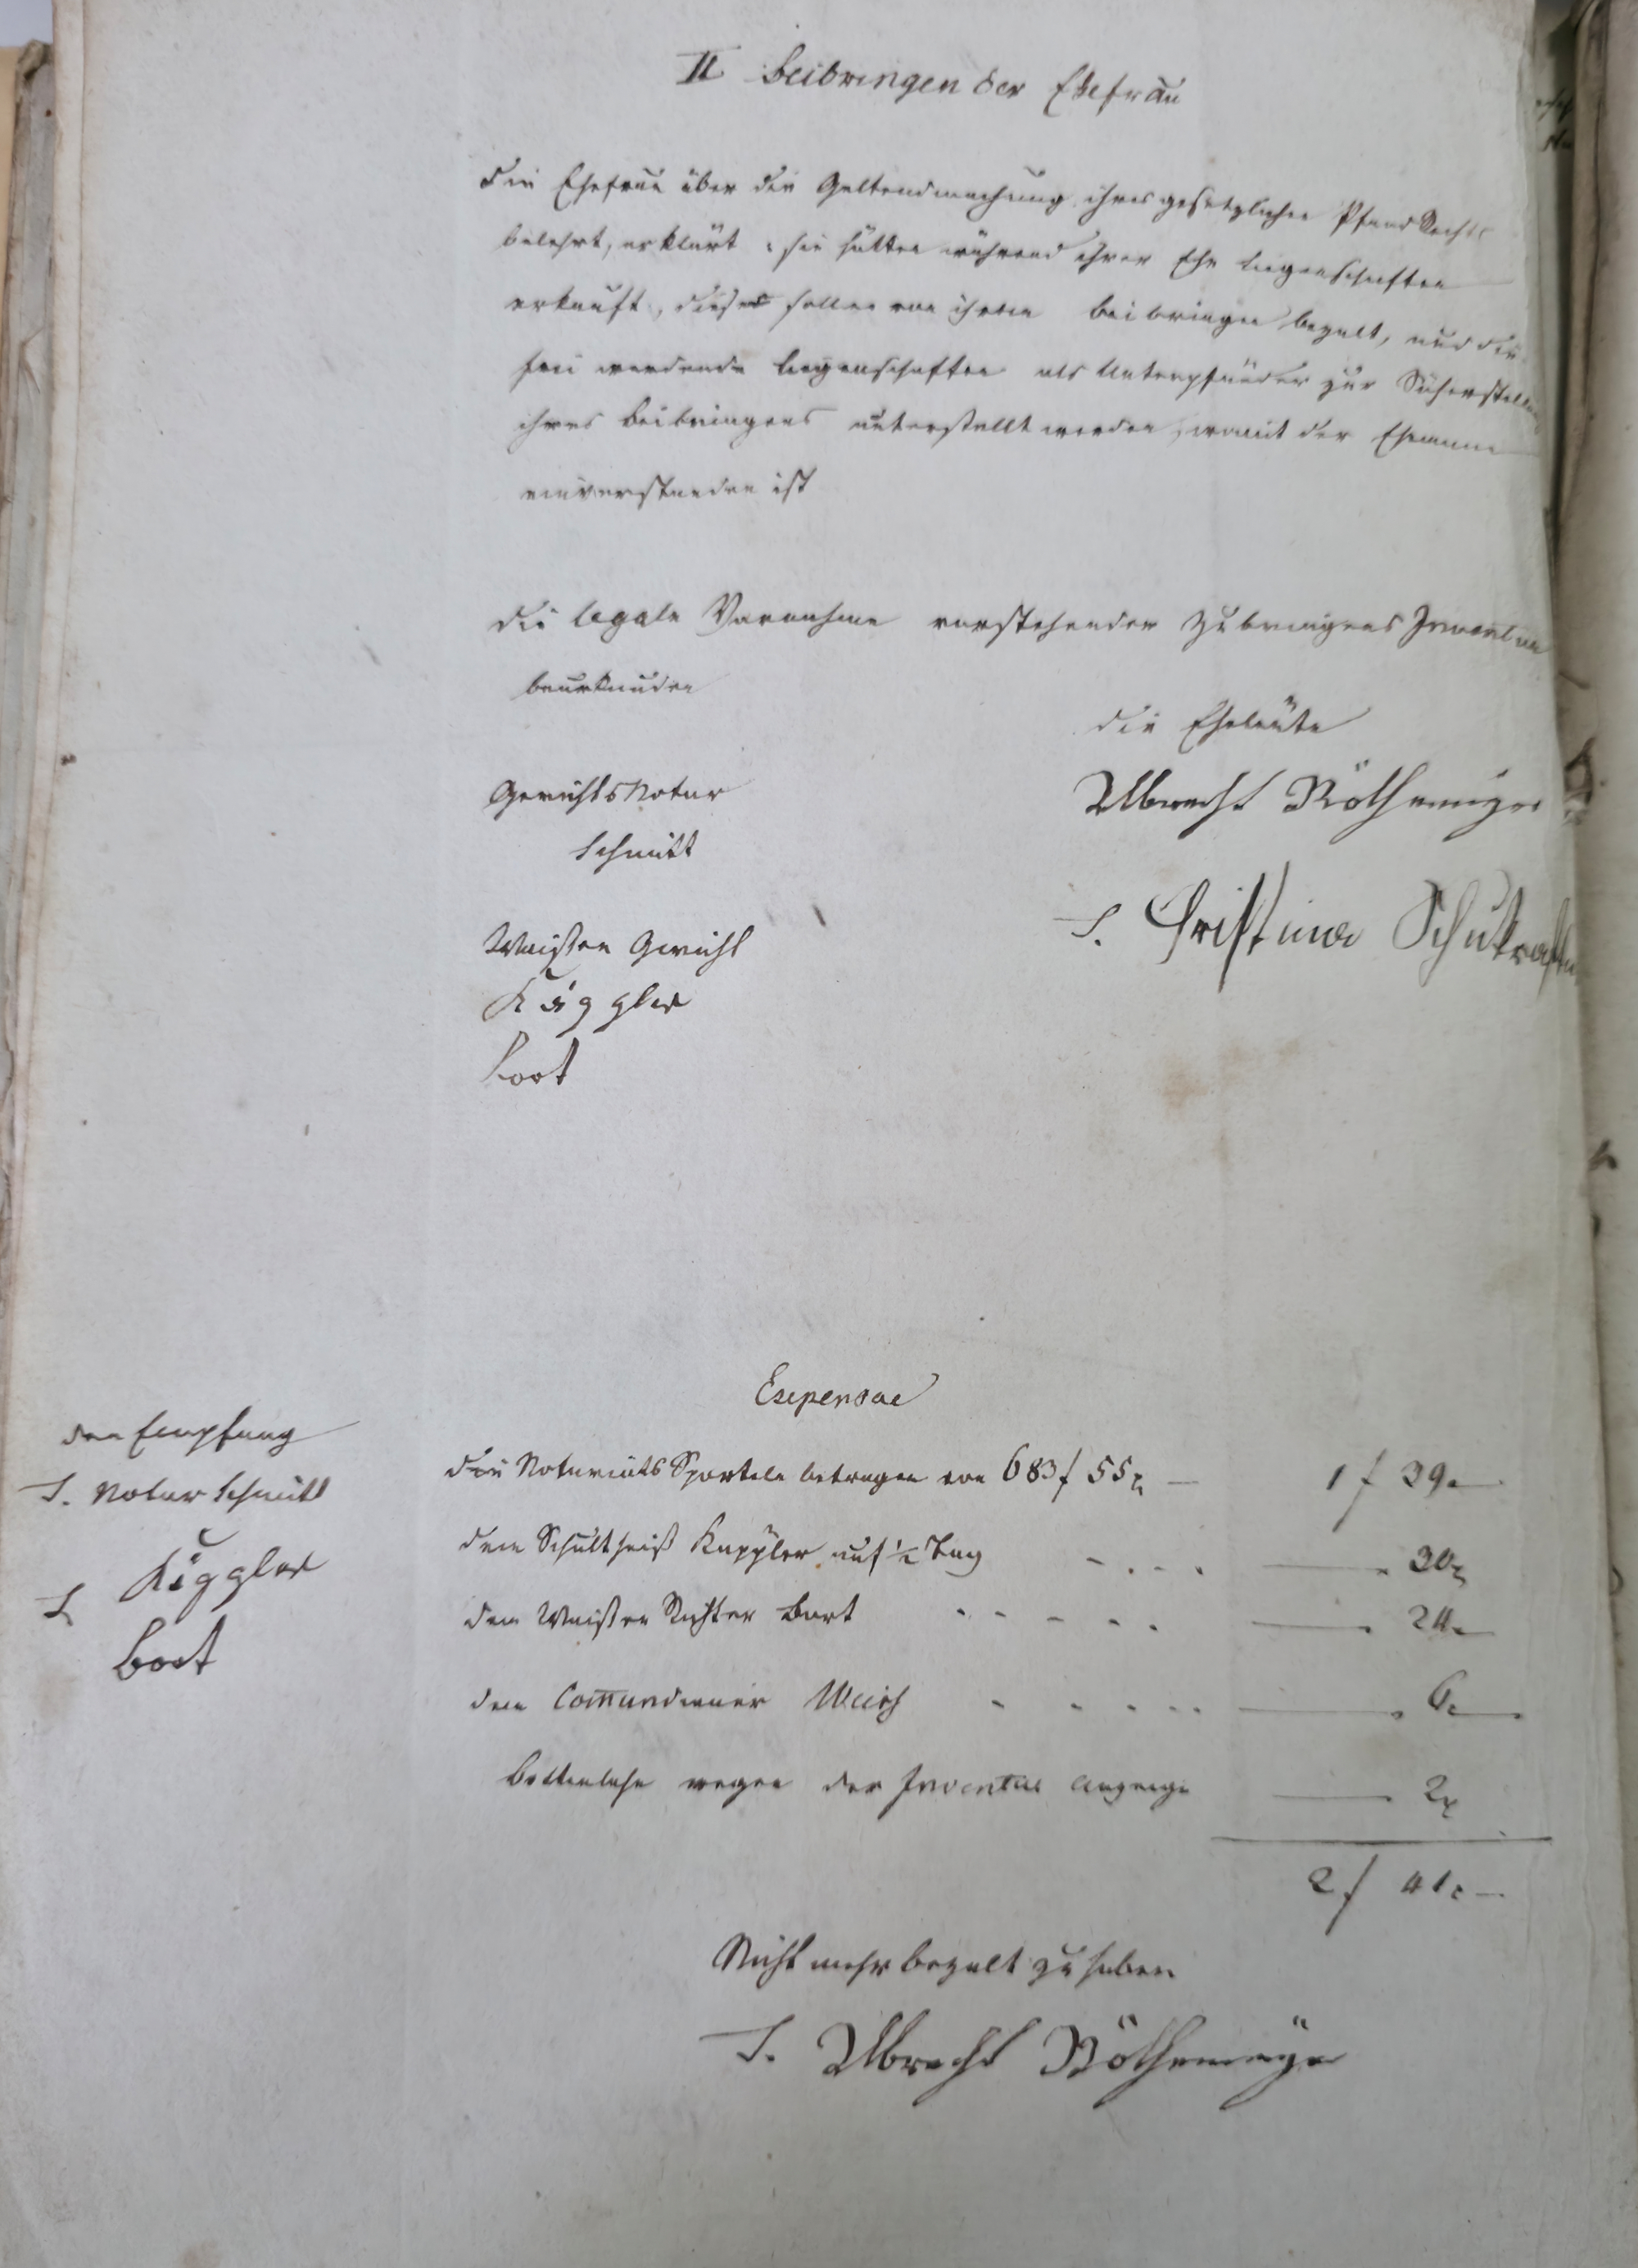 II Beibringen der Ehefrau
Die Ehefrau über die Geltendmachung ihres gesetzlichen Pfand Rechts
belehrt, erklärt: sie hätten während ihrer Ehe Liegenschaften
erkauft, diese sollen von ihrem Beibringen bezalt, und die
frei werdende Liegenschaften als Unterpfänder zur Sicherstellung
ihres Beibringens unterstellt werden, womit der Ehemann
einverstanden ist
Die legale Vornahme vorstehender Zubringens Inventur
beurkunden
Die Eheleute
GerichtsNotar
Albrecht Röthemeyer
Schmitt
T. Christina Schukraften
Waisen Gericht
Käppler
Bort
Expensae
Den Empfang
T. Notar Schmitt
Käppler
T
Bort
Die Notariats Sporteln betragen von 683 f 55 x — 1 f 39 x
dem Schultheiß Kappler auf ½ Tag 30 x
dem Waisen Richter Bort 24 x
dem Commundiener Weiß 6 x
Bottenlohn wegen der Inventur Anzeige 2 x
2 f 41 x —
Nicht mehr bezalt zu haben
T. Albrecht Röthemeyer